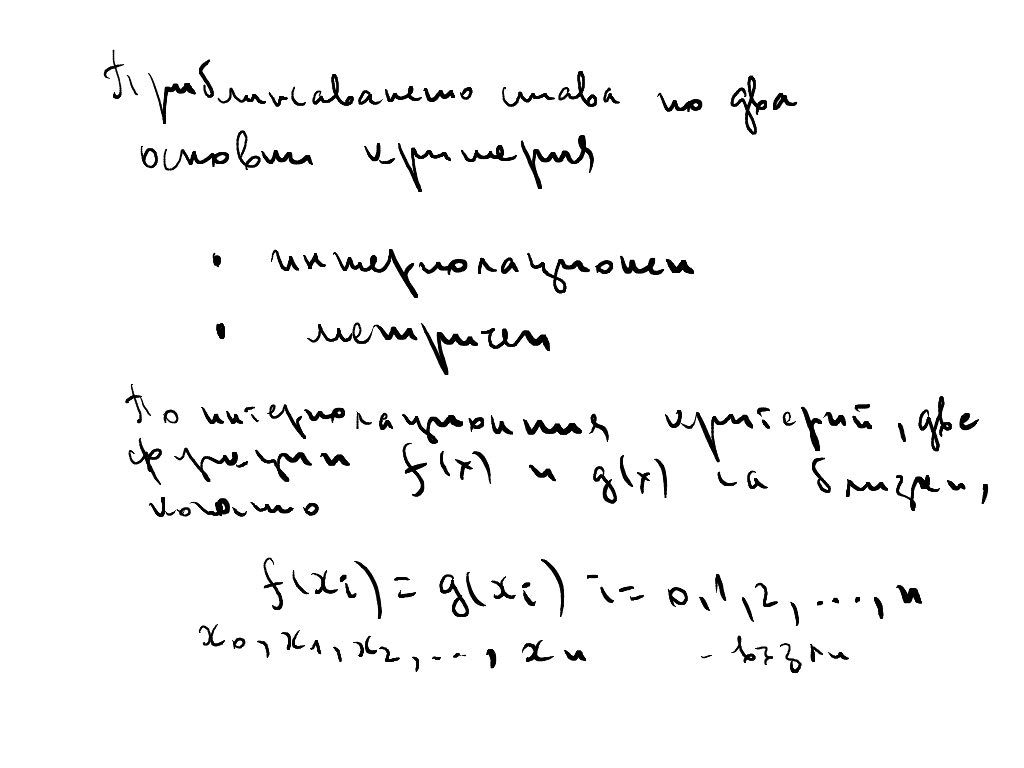 Приближаването става по два
основни критерия
• интерполационен
• метричен
По интерполационния критерий, две
функции f(x) и g(x) са близки,
когато
f(xi) = g(xi) i = 0,1,2,...,n
x0, x1, x2, ..., xn - възли